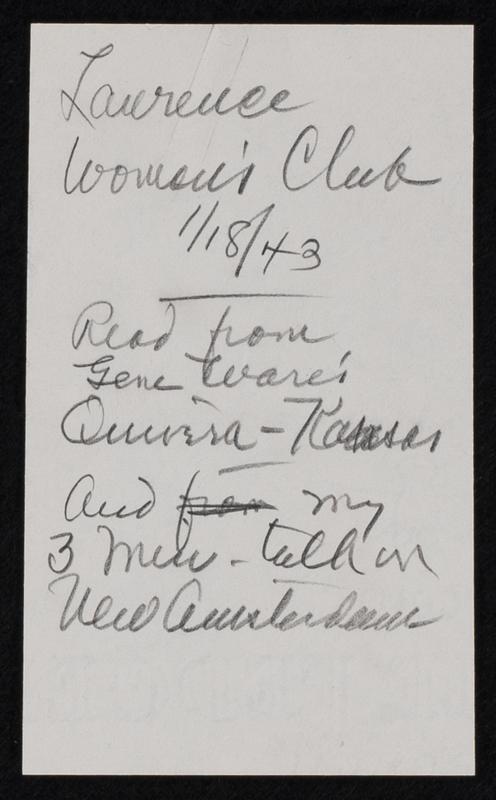 Lawrence
Women's Club
1/18/43
Read from
Gene Ware's
Quivera - Kansas
And from my
3 Min - talk on
New Amsterdam